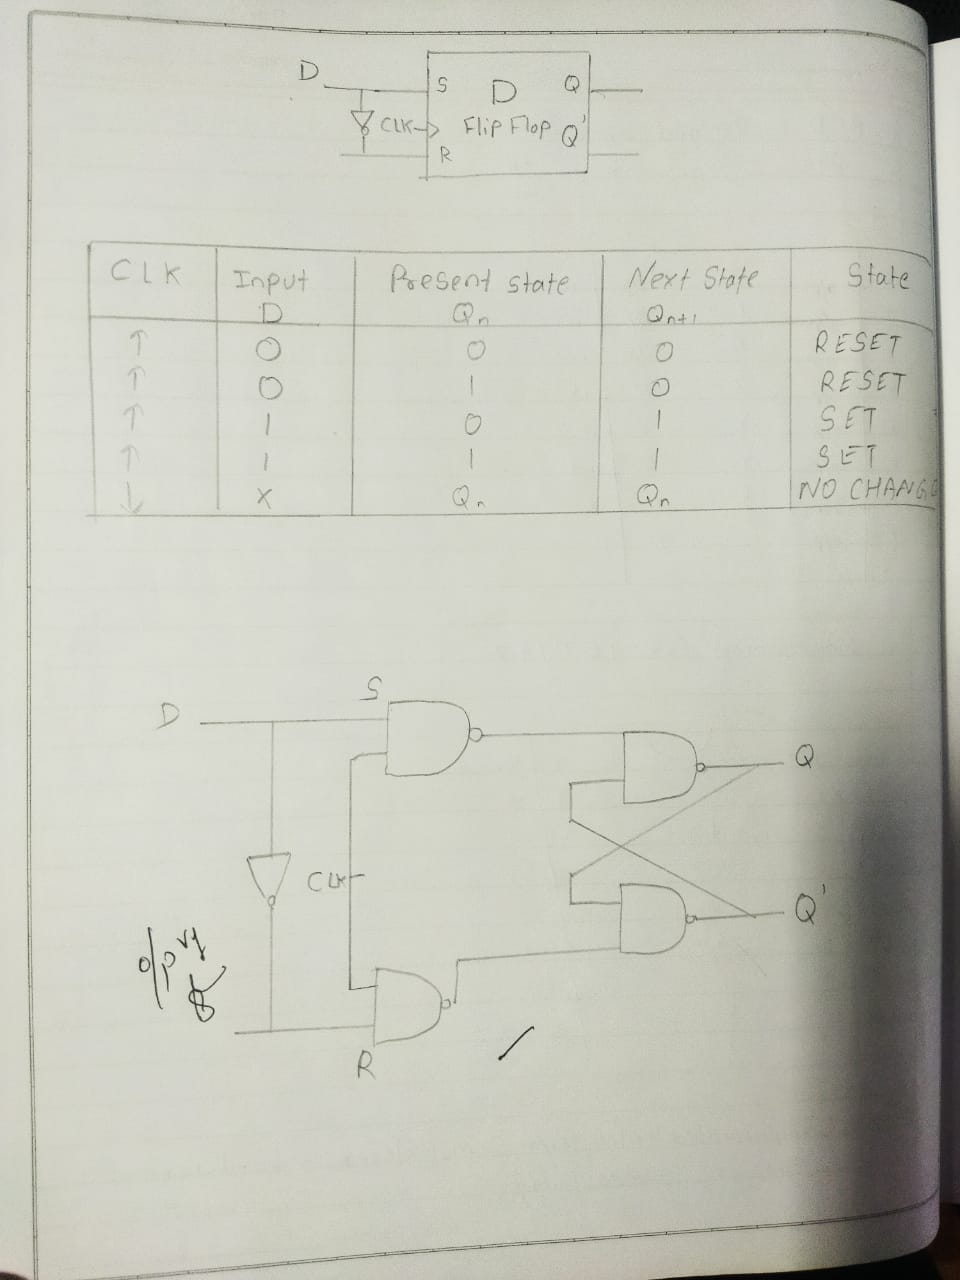 D
S D Q
CLK Flip Flop Q'
R
CLK Input Present state Next State State
D Qn Qn+1
↑ 0 0 0 RESET
↑ 0 1 0 RESET
↑ 1 0 1 SET
↑ 1 1 1 SET
↓ X Qn Qn NO CHANGE
S
D
Q
CLK
Q'
R